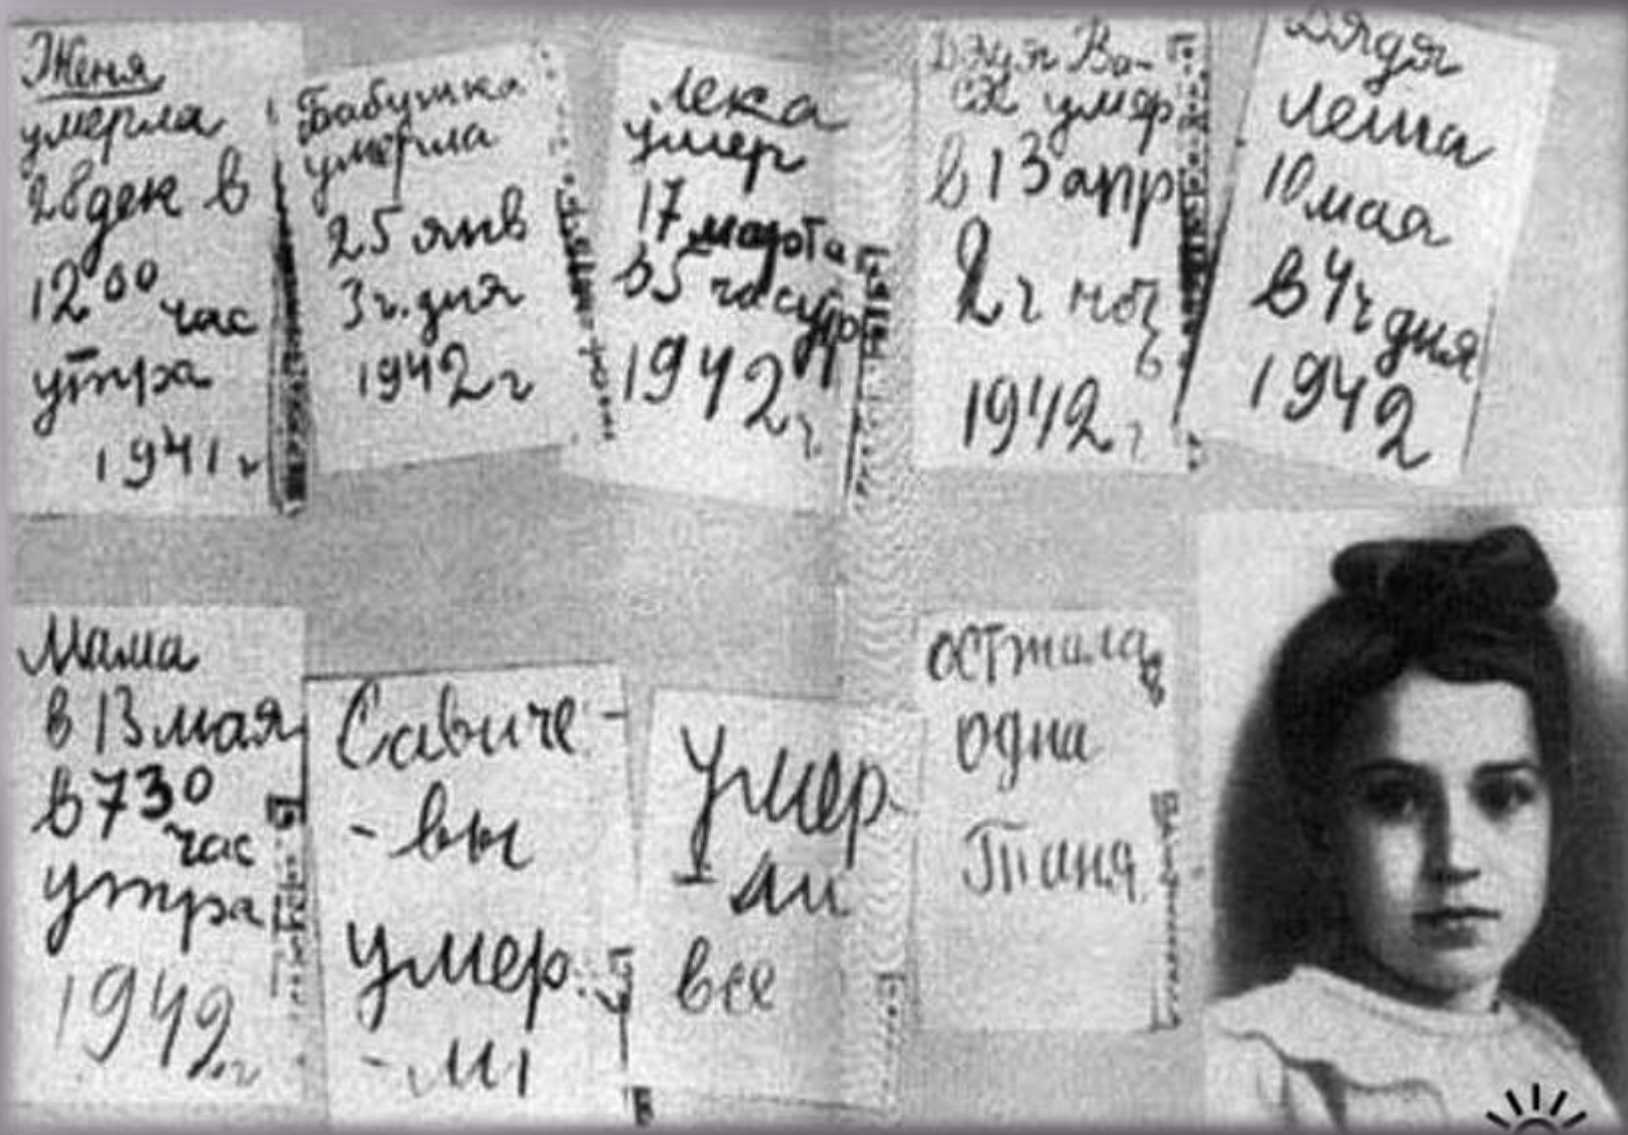 Женя
умерла
28 дек в
12 00 час
утра
1941 г
Бабушка
умерла
25 янв
3 ч. дня
1942 г
Лека
умер
17 марта
в 5 час утр
1942 г
Дядя Ва-
ся умер
в 13 апр
2 ч ноч
ь
1942 г
Дядя
Леша
10 мая
в 4 ч дня
1942
Мама
в 13 мая
в 7 30
час
утра
1942 г
Савиче-
- вы
умер
- ли
умер
- ли
все
осттала
одна
Таня